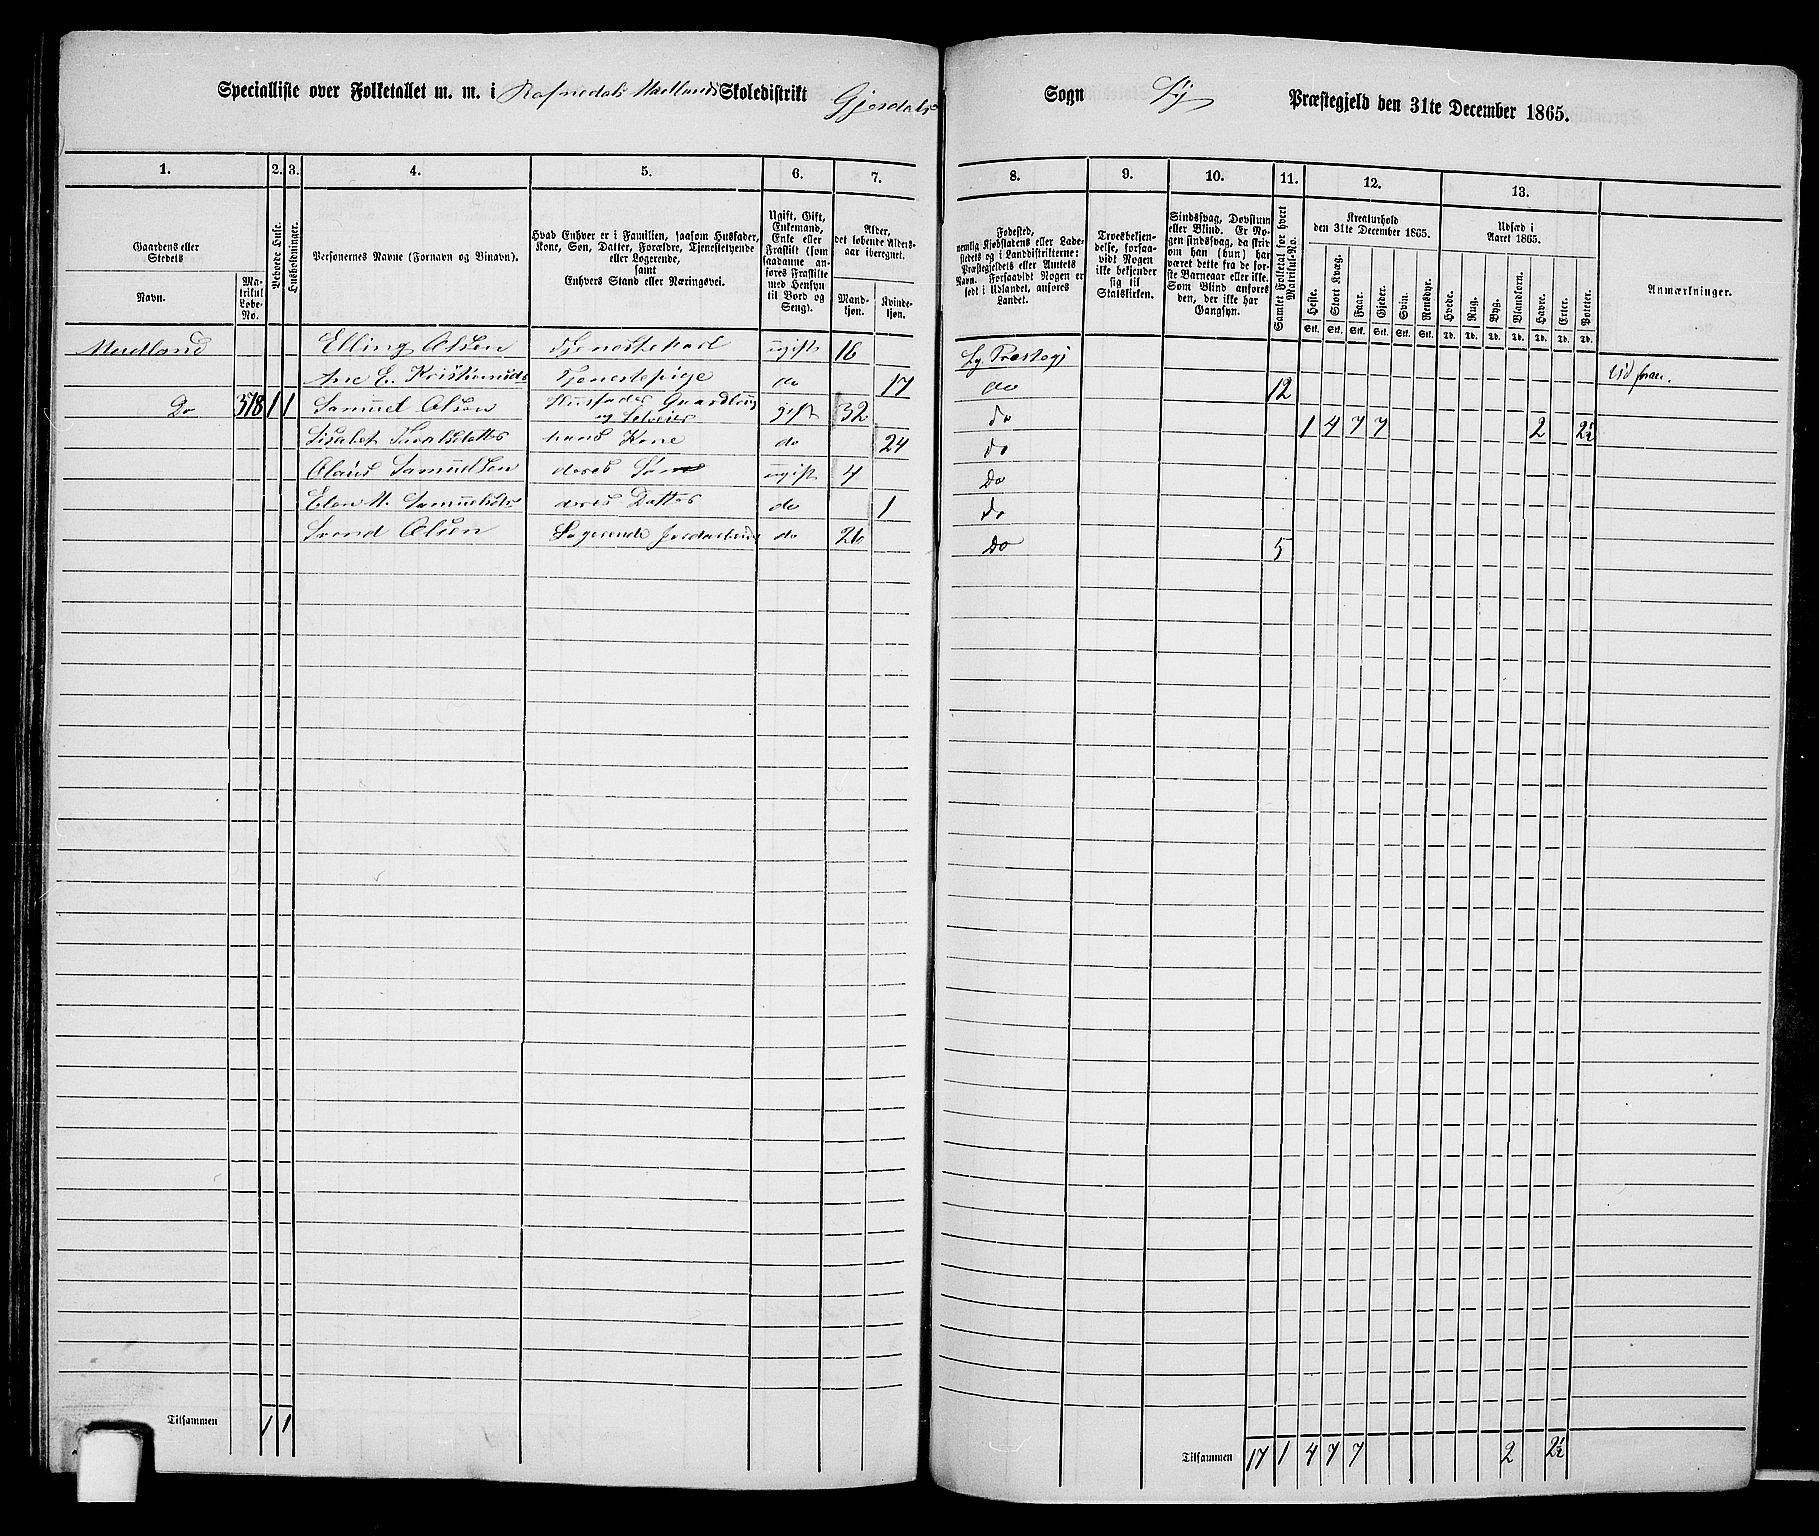 Specialliste over Folketallet m. m. i Rafnedals Madlands Skoledistrikt Gjesdals Sogn Ly Præstegjeld den 31te December 1865.
1. 2. 3. 4. 5. 6. 7. 8. 9. 10. 11. 12. 13.
Gaardens eller Stedets
Navn.
Matrikul Løbe-No.
Beboede Huse.
Husholdninger.
Personernes Navne (Fornavn og Tilnavn).
Hvad Enhver er i Familien, saasom Husfader, Kone, Søn, Datter, Forældre, Tjenestetyende eller Logerende, samt
Enhvers Stand eller Næringsvei.
Ugift, Gift, Enkemand, Enke eller Fraskilt (som saadanne anføres Fraskilte med Hensyn til Bord og Seng).
Alder, det løbende Aldersaar iberegnet.
Mandkjøn.
Kvindekjøn.
Fødested, nemlig Kjøbstadens eller Ladestedets og i Landdistrikterne: Præstegjeldets eller Amtets Navn. Forsaavidt Nogen er født i Udlandet, anføres Landet.
Troesbekjendelse, forsaavidt Nogen ikke bekjender sig til Statskirken.
Sindssvag, Døvstum eller Blind. Er Nogen sindssvag, da skriv om han (hun) har været dette fra de første Barneaar eller ikke. Som Blind anføres den, der ikke har Gangsyn.
Samlet Folketal for hvert Matrikul-No.
Kreaturhold den 31te December 1865.
Heste. Stort Kvæg. Faar. Gjeder. Svin. Rensdyr.
Stk. Stk. Stk. Stk. Stk. Stk.
Udsæd i Aaret 1865.
Hvede. Rug. Byg. Blandkorn. Havre. Erter. Poteter.
Td. Td. Td. Td. Td. Td. Td.
Anmærkninger.
Madland Elling Olsen Tjenestekarl ugift 16 Ly Præstegj
Ane E. Kristiansd do Tjenestepige do 17 do 12 Vid foran.
Do 378 1 1 Samuel Olsen Husfader Gaardbrug og Selveier gift 32 do 1 4 7 7 2 2½
Lisabet Tvalsdatter hans Kone do 24 do
Olaus Samuelsen deres Søn ugift 4 Do
Elen M. Samuelsdtr deres Datter do 1 do
Svend Olsen Logerende Jordarbeider do 26 Do 5
Tilsammen 1 1
Tilsammen 17 1 4 7 7 2 2½